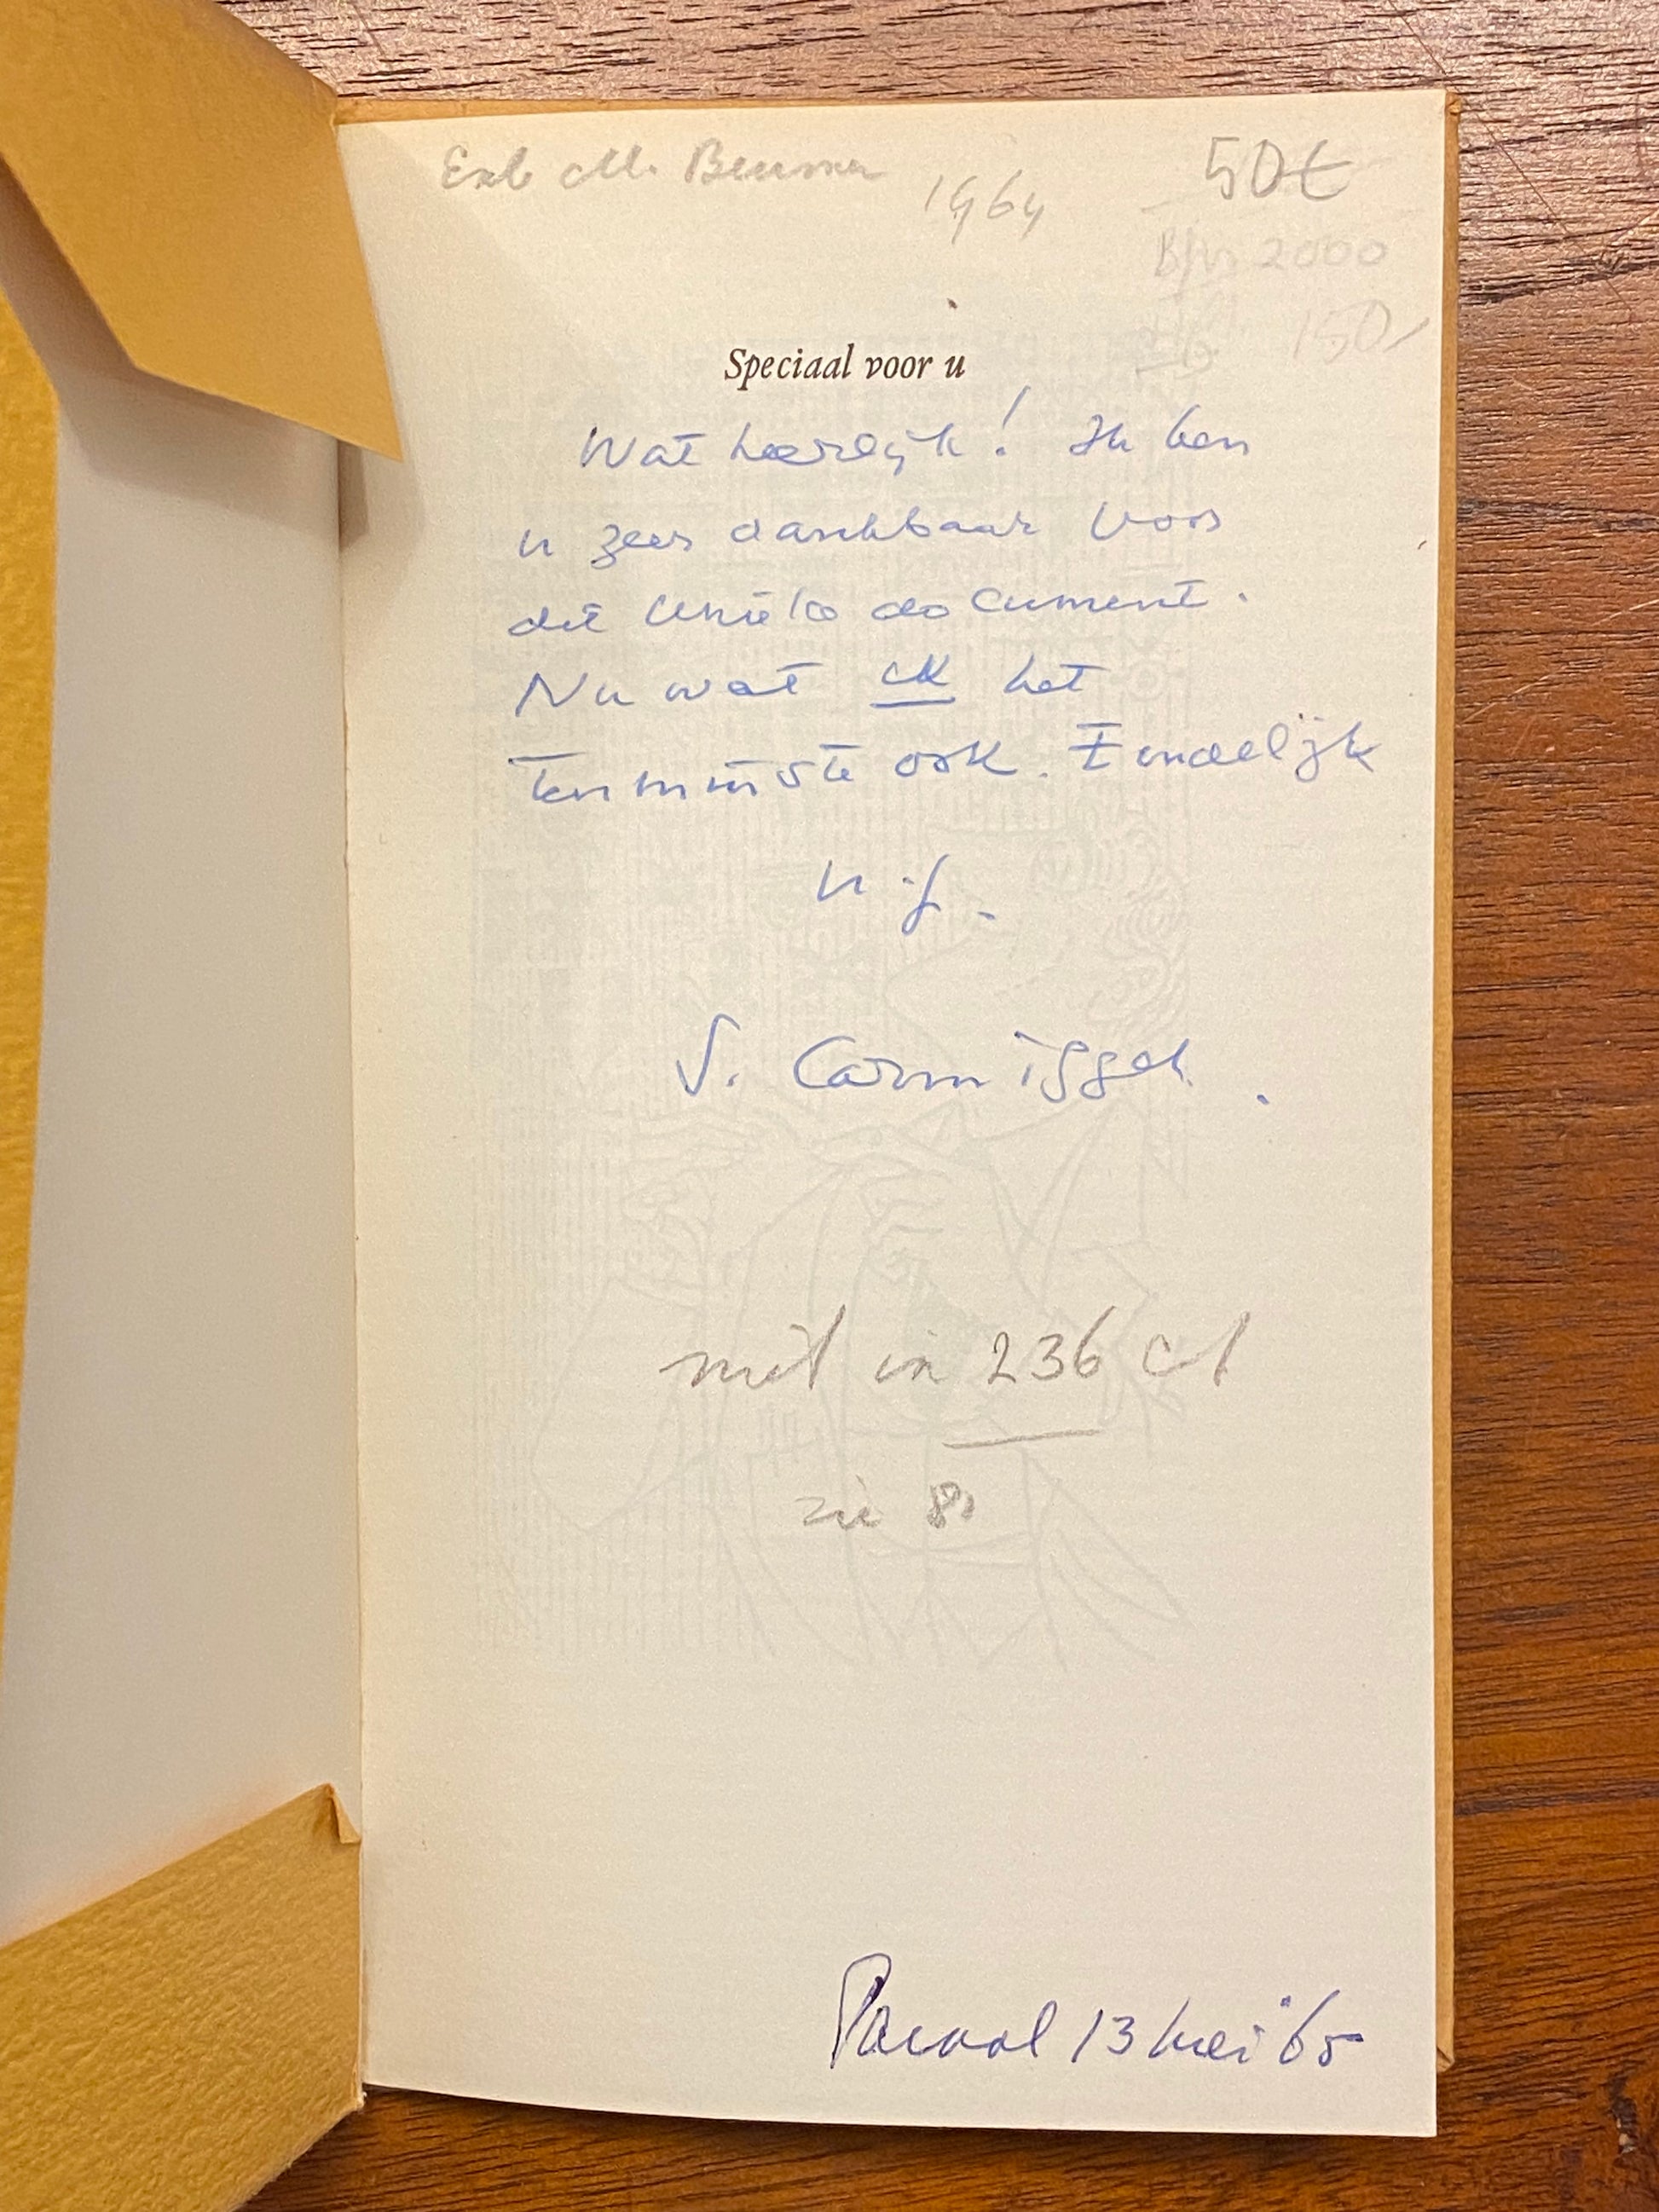 Exb M. Beumer
1964
50€
2000
150,
Speciaal voor u
Wat heerlijk! Ik ben
u zeer dankbaar voor
dit unieke document.
Nu wat ik het
tenminste ook. Eindelijk
S. Carmiggelt.
niet in 236 ct
zie 8
13 mei '65